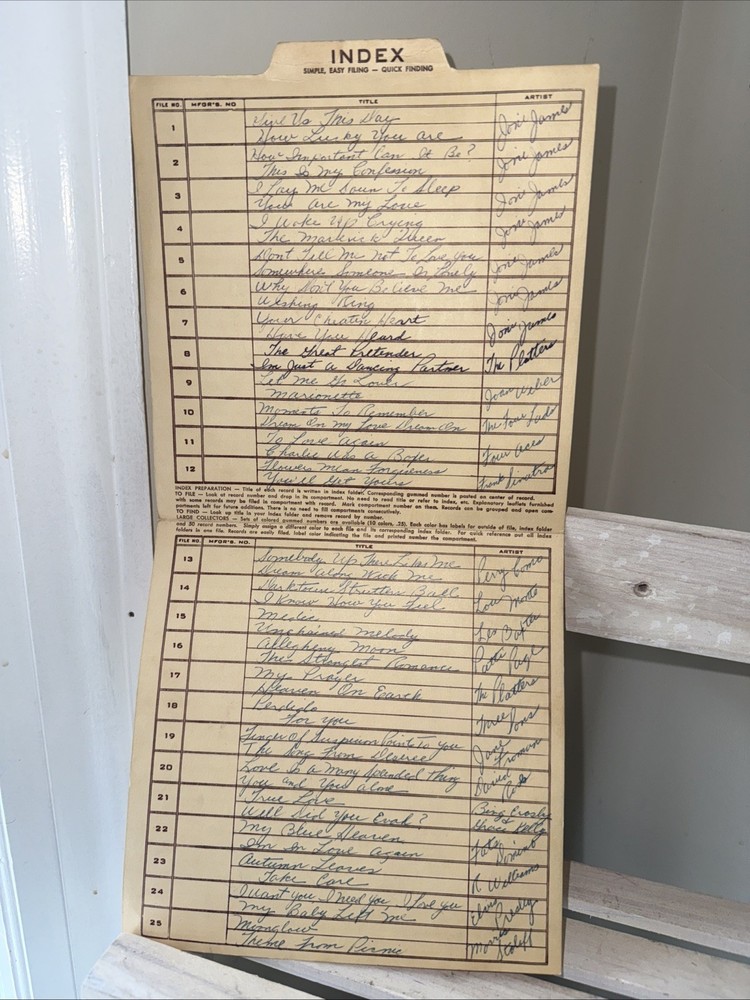 INDEX
SIMPLE, EASY FILING — QUICK FINDING
FILE NO. MFGR'S. NO TITLE ARTIST
1 Give Us This Day Joni James
How Lucky You are
2 How Important Can It Be? Joni James
This Is My Confession
3 I Lay Me Down To Sleep Joni James
You are My Love
4 I Woke Up Crying Joni James
The Maverick Queen
5 Dont Tell Me Not To Love You Joni James
Somewhere Someone Is Lonely
6 Why Don't You Believe Me Joni James
Wishing Ring
7 Your Cheatin Heart Joni James
Have You Heard
8 The Great Pretender The Platters
Im Just a Dancing Partner
9 Let Me Go Lover Joan Weber
Marionette
10 Moments To Remember The Four Lads
Dream On My Love Dream On
11 To Love Again Four Aces
Charlie Was A Boxer
12 Flowers Mean Forgiveness Frank Sinatra
You'll Get Yours
INDEX PREPARATION — Title of each record is written in index folder. Corresponding gummed number is posted on center of record.
TO FILE — Look at record number and drop in its compartment. No need to read title or refer to index, etc. Explanatory leaflets furnished
with some records may be filed in compartment with record. Mark compartment number on them. Records can be grouped and open com-
partments left for future additions. There is no need to fill compartments consecutively.
TO FIND — Look up title in your index folder and remove record by number.
LARGE COLLECTORS — Sets of colored gummed numbers are available (10 colors, .25). Each color has labels for outside of file, index folder
and 50 record numbers. Simply assign a different color to each file and its corresponding index folder. For quick reference put all index
folders in one file. Records are easily filed, label color indicating the file and printed number the compartment.
FILE NO. MFGR'S. NO. TITLE ARTIST
13 Somebody Up There Likes Me Perry Como
Dream Along With Me
14 Darktown Strutters Ball Lou Monte
I Know How You Feel
15 Medic Les Baxter
Unchained Melody
16 Allegheny Moon Patti Page
The Strangest Romance
17 My Prayer The Platters
Heaven On Earth
18 Perdido Three Suns
For You
19 Finger Of Suspicion Points To You Jane Froman
The Song From Desiree
20 Love Is a Many Splendid Thing David
You and You Alone
21 True Love Bing Crosby &
Well Did You Evah? Grace Kelly
22 My Blue Heaven Fats Domino
Im In Love Again
23 Autumn Leaves R. Williams
Take Care
24 I Want You I Need You I Love You Elvis Presley
My Baby Left Me
25 Moonglow Morris Stoloff
Theme From Picnic